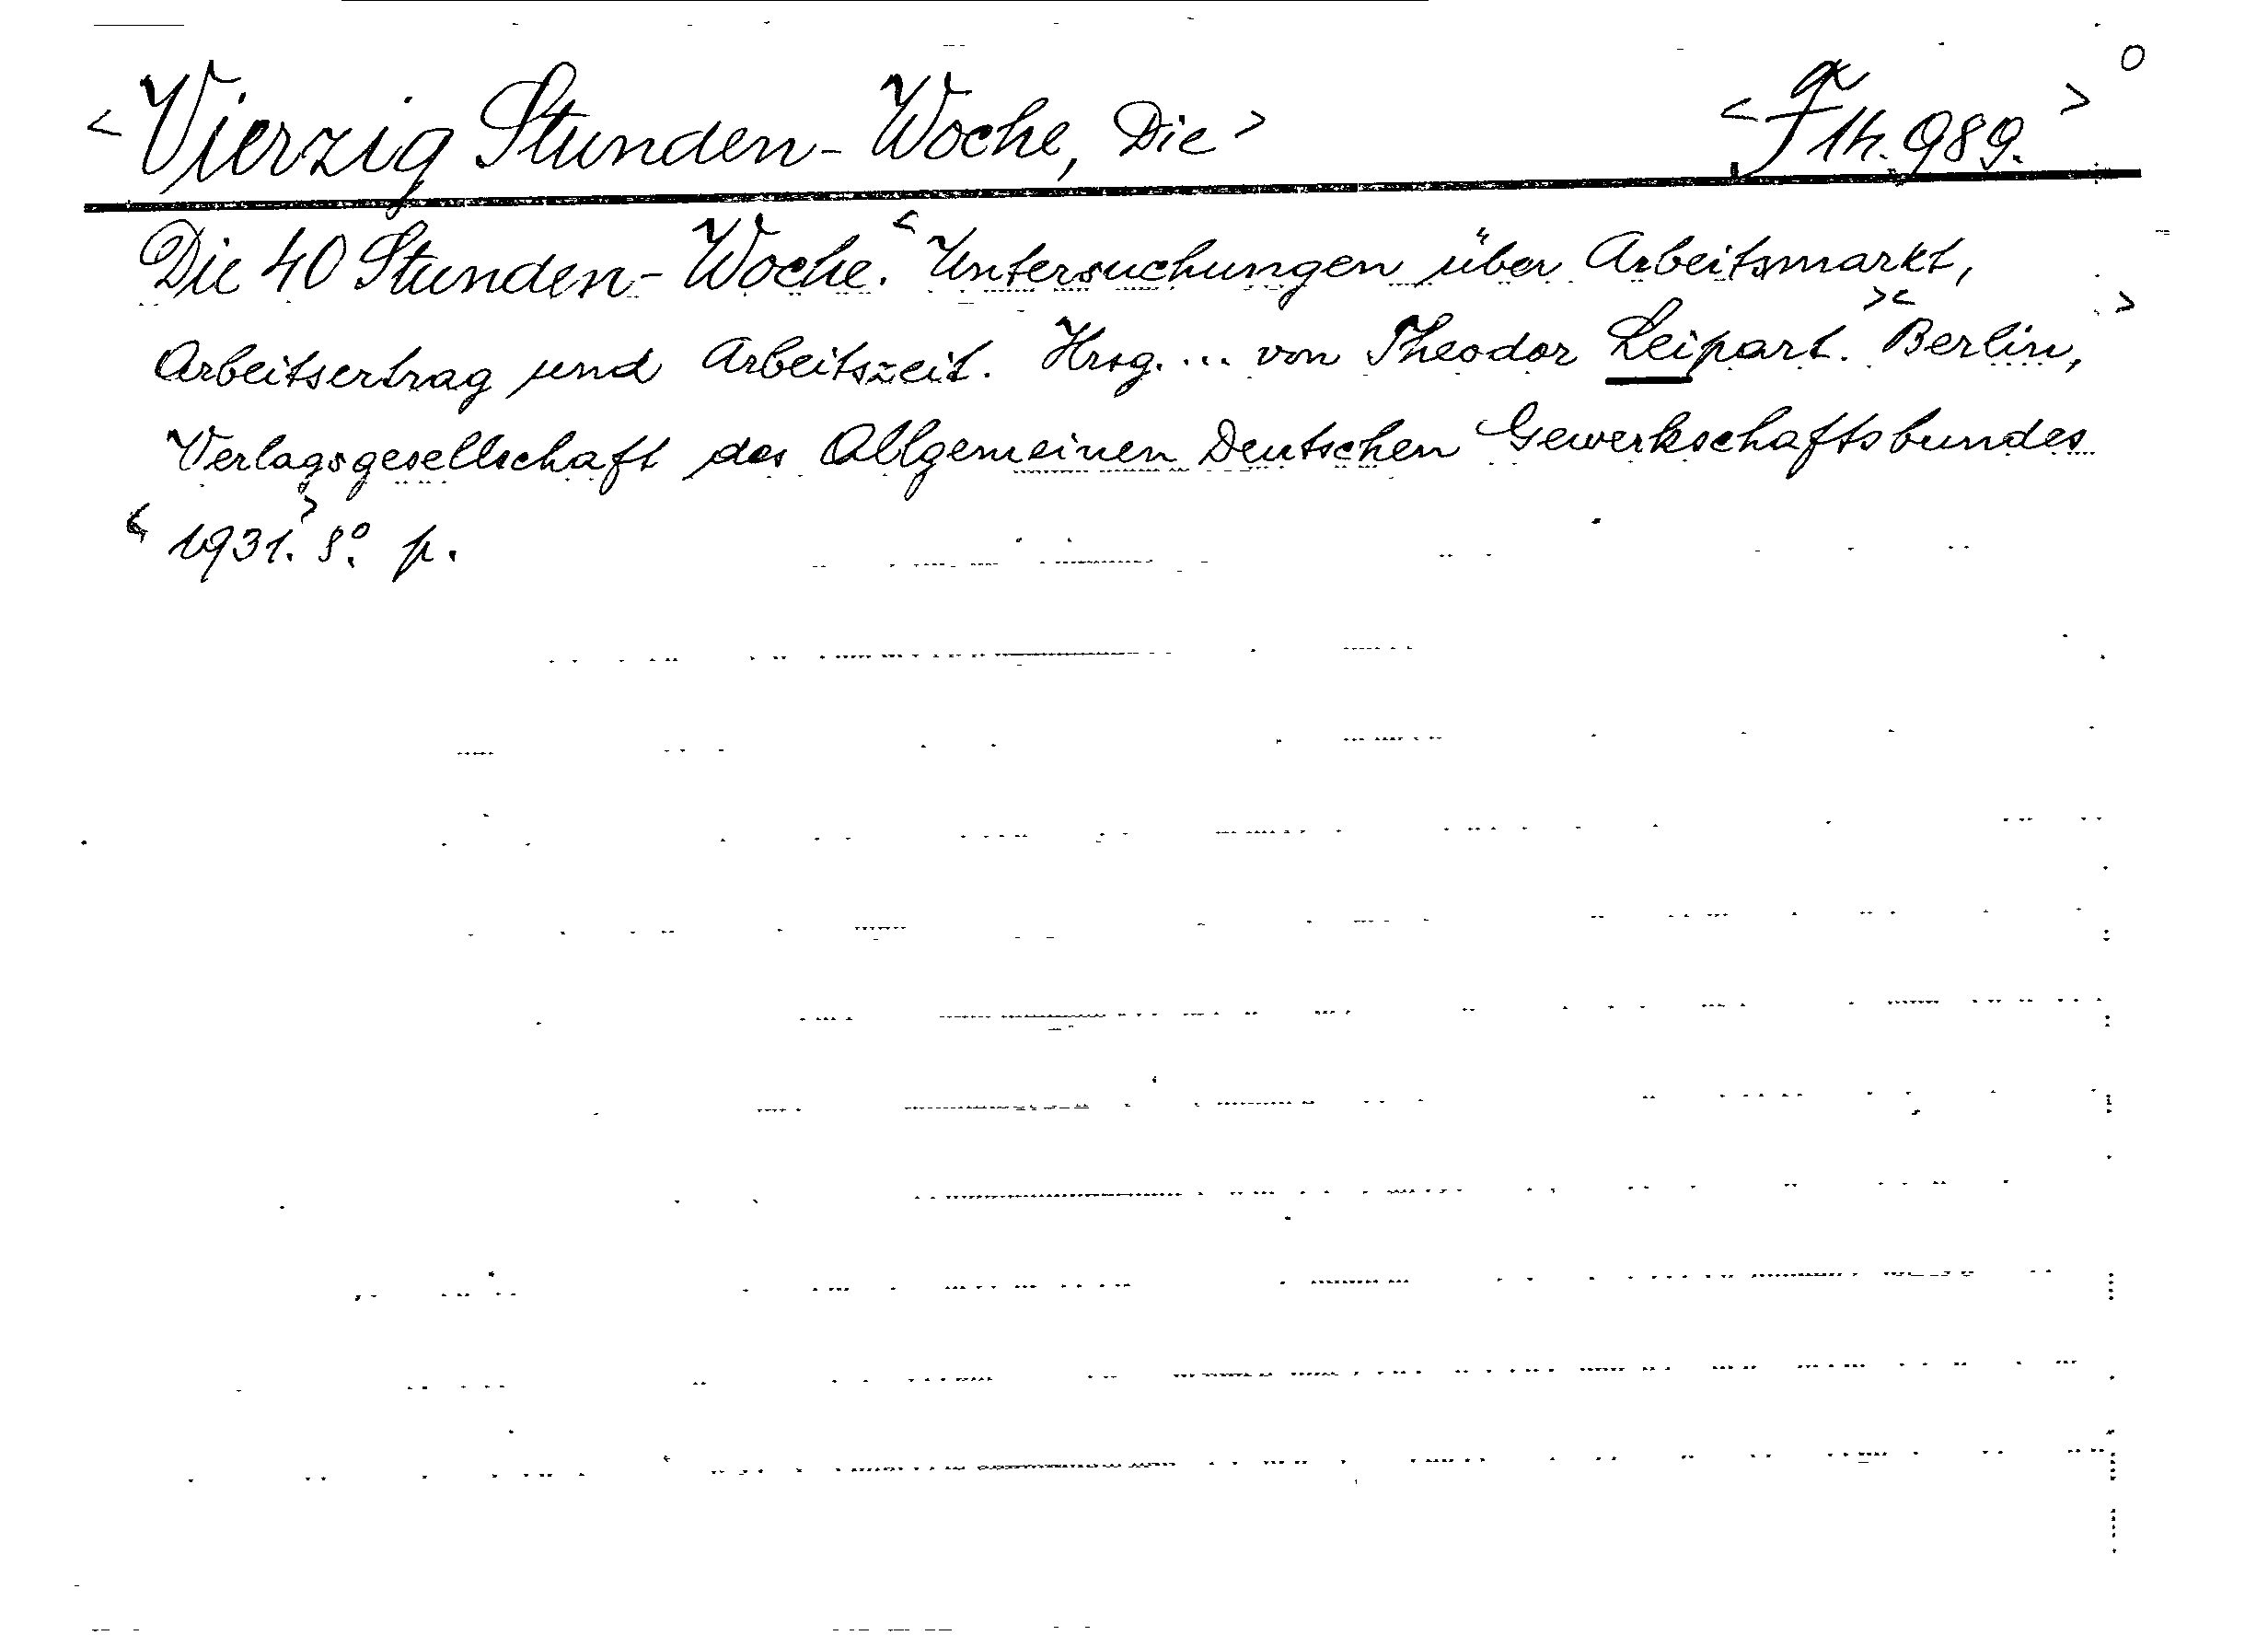 <Vierzig Stunden-Woche, Die> <F 14.989.> o
Die 40 Stunden-Woche. <Untersuchungen über Arbeitsmarkt,
Arbeitsertrag und Arbeitszeit. Hrsg. ... von Theodor Leipart.>< Berlin,>
Verlagsgesellschaft des Allgemeinen Deutschen Gewerkschaftsbundes
<1931.> 8°. p.